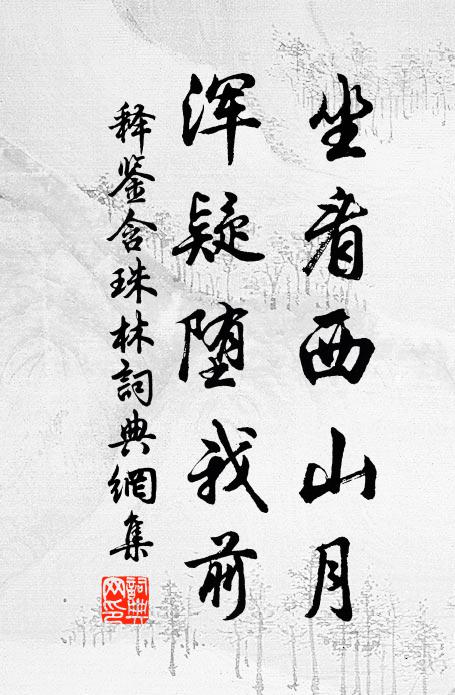 坐看西山月
浑疑堕我前
释鉴含珠林詞典網集
詞典